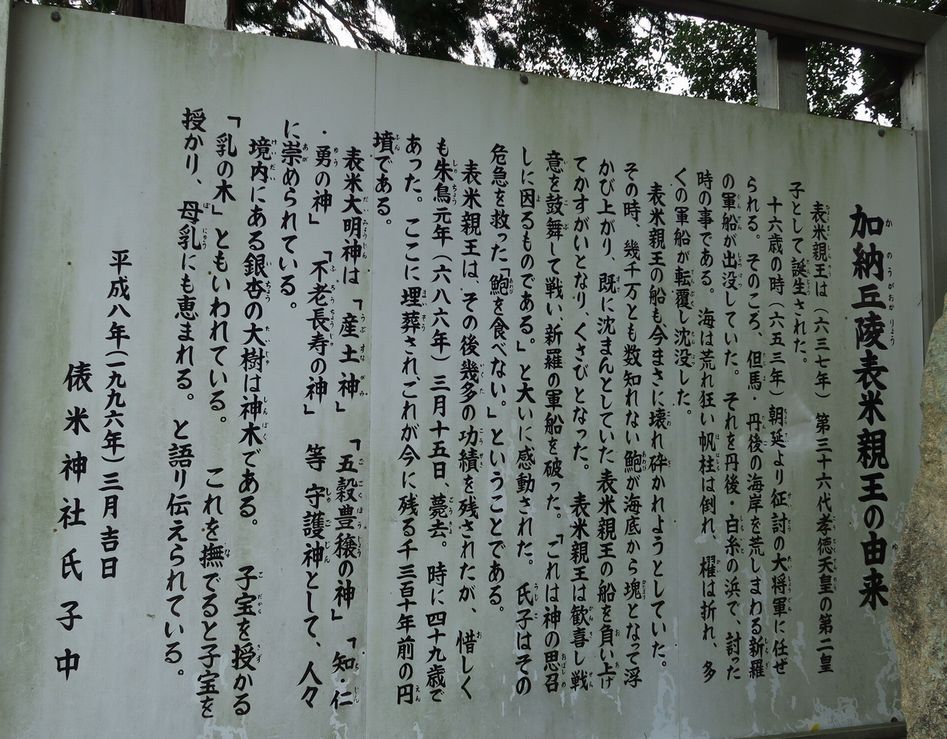 加納丘陵表米親王の由来
表米親王は（六三七年）第三十六代孝徳天皇の第二皇
子として誕生された。
十六歳の時（六五三年）朝廷より征討の大将軍に任ぜ
られる。そのころ、但馬・丹後の海岸を荒しまわる新羅
の軍船が出没していた。それを丹後・白糸の浜で、討った
時の事である。海は荒れ狂い帆柱は倒れ、櫂は折れ、多
くの軍船が転覆し沈没した。
表米親王の船も今まさに壊れ砕かれようとしていた。
その時、幾千万とも数知れない鮑が海底から塊となって浮
かび上がり、既に沈まんとしていた表米親王の船を負い上げ
てかすがいとなり、くさびとなった。表米親王は歓喜し戦
意を鼓舞して戦い、新羅の軍船を破った。「これは神の思召
しに因るものである。」と大いに感動された。氏子はその
危急を救った「鮑を食べない。」ということである。
表米親王は、その後幾多の功績を残されたが、惜しく
も朱鳥元年（六八六年）三月十五日、薨去。時に四十九歳で
あった。ここに埋葬されこれが今に残る千三百十年前の円
墳である。
表米大明神は「産土神」「五穀豊穣の神」「知・仁
・勇の神」「不老長寿の神」等守護神として、人々
に崇められている。
境内にある銀杏の大樹は神木である。子宝を授かる
「乳の木」ともいわれている。これを撫でると子宝を
授かり、母乳にも恵まれる。と語り伝えられている。
平成八年（一九九六年）三月吉日
俵米神社氏子中